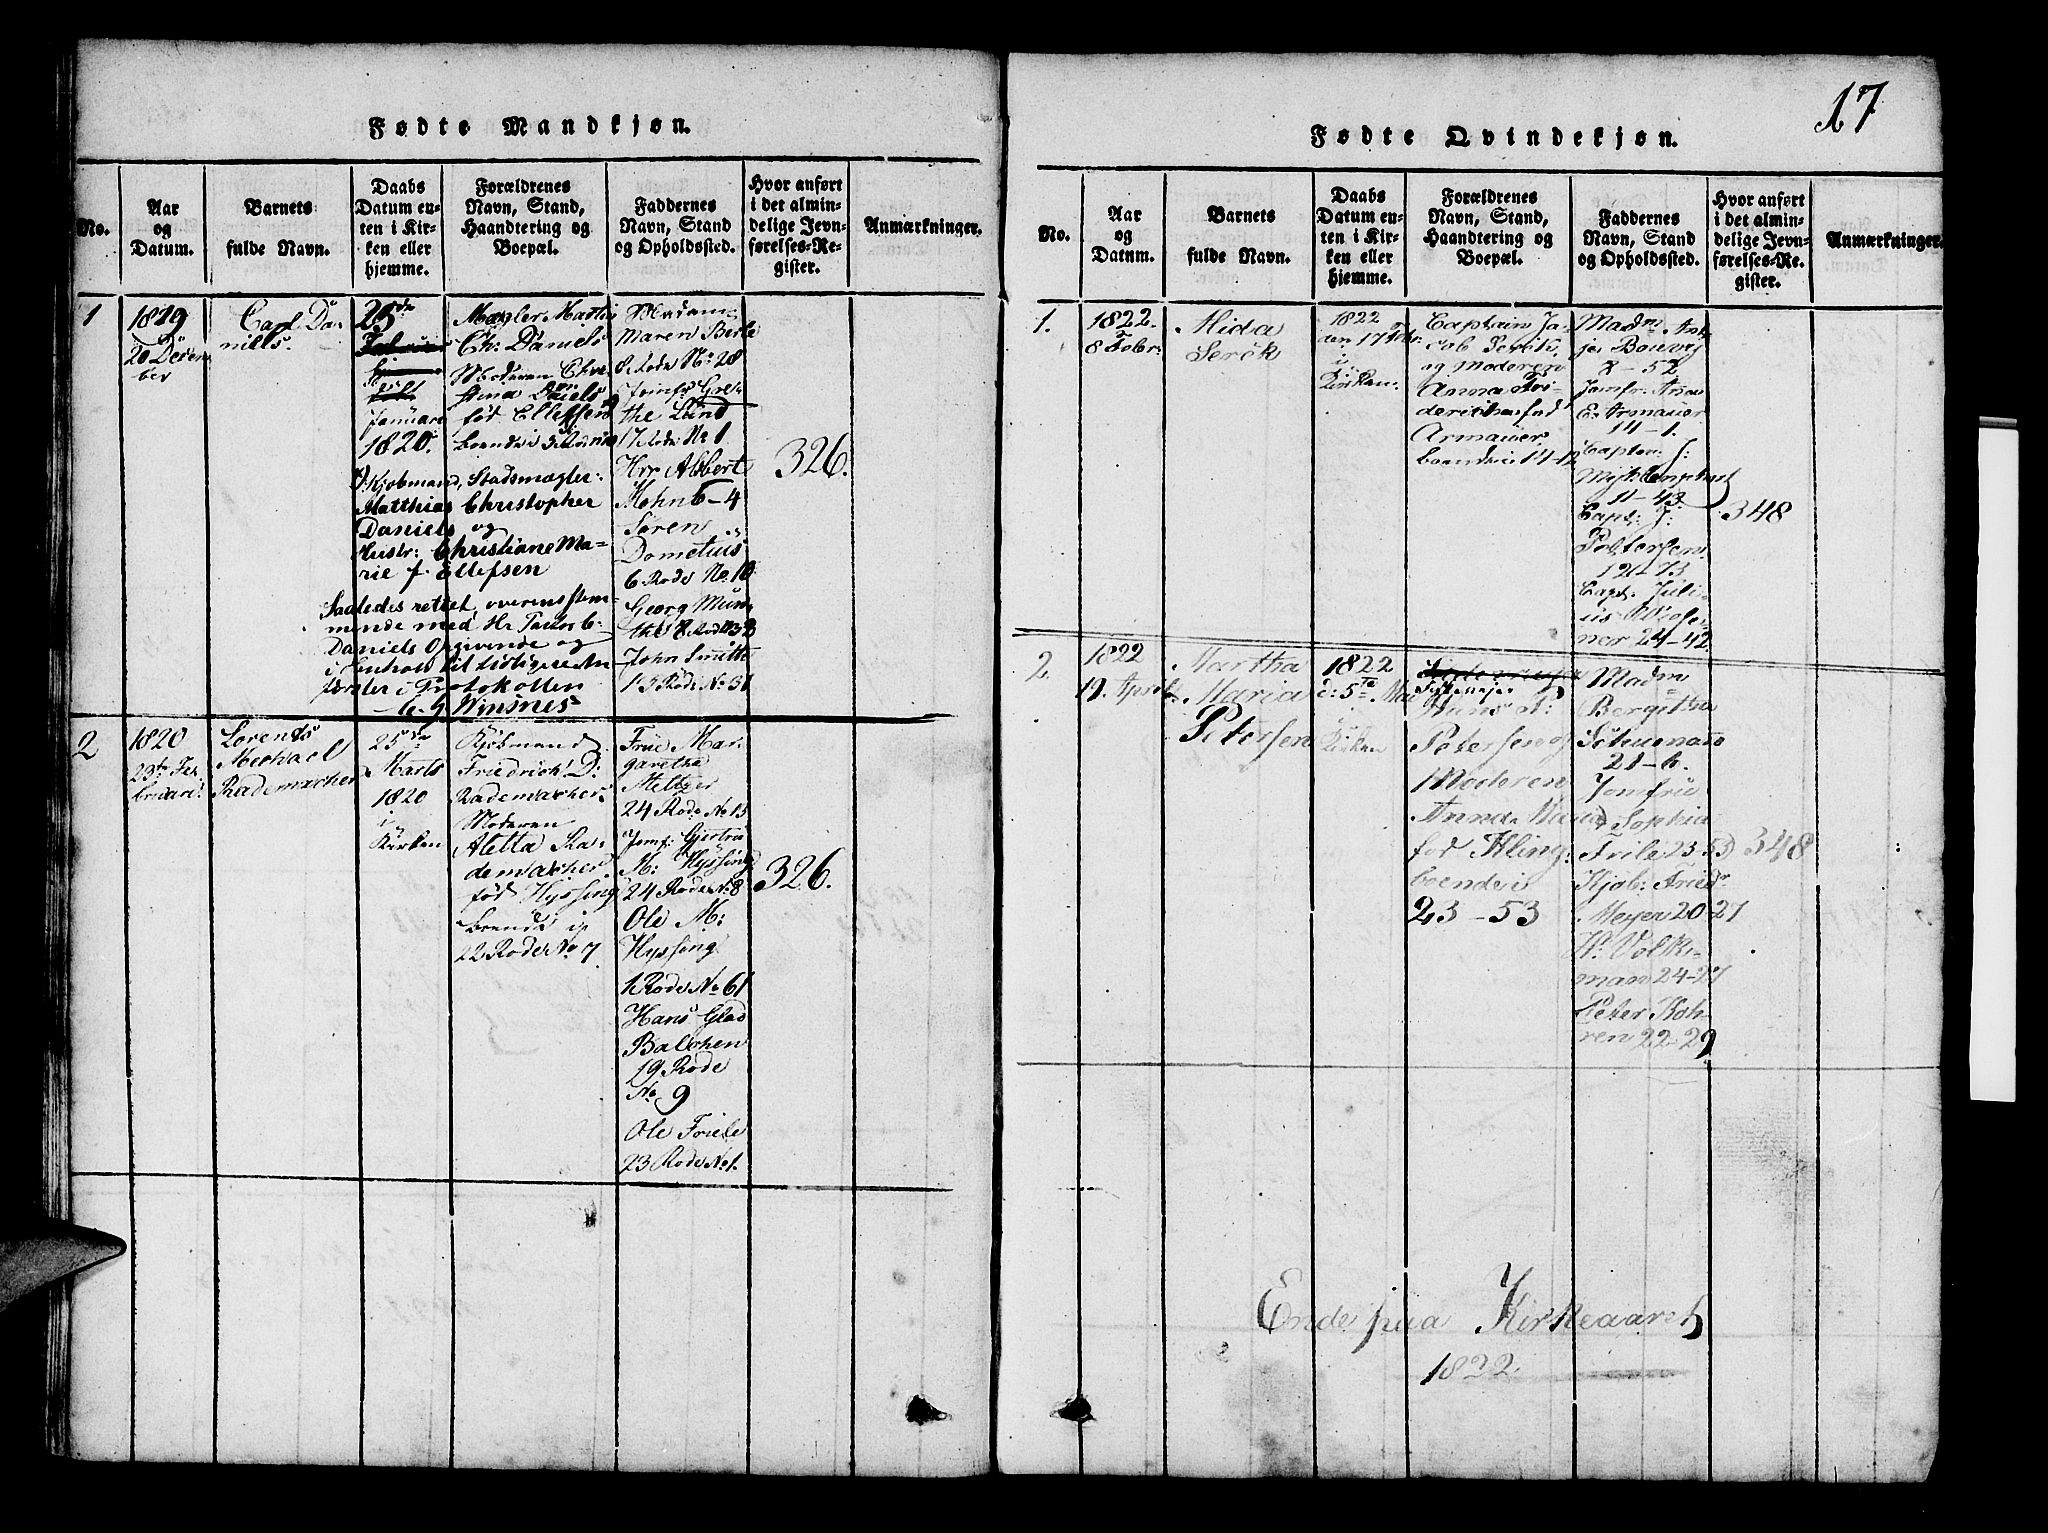 Fødte Mandkjøn.
No.
Aar
og
Datum.
Barnets
fulde Navn.
Daabs
Datum en-
ten i Kir-
ken eller
hjemme.
Forældrenes
Navn, Stand,
Haandtering og
Boepæl.
Faddernes
Navn, Stand
og Opholdssted.
Hvor anført
i det almin-
delige Jevn-
førelses-Re-
gister.
Anmærkninger.
1
1819
20 Decem
ber
Carl Da-
niels.
25de
Januari
1820.
Mægler Mathi
Ch: Daniels
Moderen Chri
stina Daniels
født Ellefsen
boende i 3 Rode No
Kjøbmand, Stadsmægler:
Matthias Christopher
Daniels og
Hustr: Christiane Ma-
rie f. Ellefsen
Saaledes rettet, overensstem-
mende med Hr Pastor
Daniels Opgivende og
i Henhold til tidligere An
førsler i Protokollen
Winsnes
Madam
Maren Berle
8 Rode No: 28
Jomfr Gre-
the Lund
17 Rode No 1
Hrr Albert
Mohn 6-4
Søren
Dometius
6 Rode No. 10
Georg Mun-
the 8 Rode No 32
John Smitt
15 Rode No 31
326.
2
1820
23de Fe-
bruari
Lorents
Michael
Rademacher
25de
Marts
1820
i
Kirken
Kjøbmand
Friedrich D:
Rademacher
Moderen
Aletta Ra-
demacher.
fød Hyssing
boende i
22 Rode No 7
Frue Mar-
garetha
Meltzer
24 Rode No 15
Jomf: Gjertru
M: Hyssing
24 Rode No 8
Ole M:
Hyssing
1 Rode No 61
Hans Glad
Balchen
19 Rode
No 9
Ole Friele
23 Rode No 1.
326.
17
Fødte Qvindekjøn.
No.
Aar
og
Datum.
Barnets
fulde Navn.
Daabs
Datum en-
ten i Kir-
ken eller
hjemme.
Forældrenes
Navn, Stand,
Haandtering og
Boepæl.
Faddernes
Navn, Stand
og Opholdssted.
Hvor anført
i det almin-
delige Jevn-
førelses-Re-
gister.
Anmærkninger.
1.
1822.
8 Febr:
Mida
Serck
1822
den 17 Febr.
i
Kirken.
Captain Ja-
cob Serck,
og Moderen
Anna Fri-
derichen fød
Armauer
boende i 14-12
Madm: Ant-
je Bouvy
8-52
Jomfr: Ana
E: Armauer
14-1.
Capten: J:
11-43
Capt: J:
Petersen
Capt. Juli-
us Wiese-
ner 24-42
348
2.
1822
19. April
Martha
Maria
Petersen
1822
d: 5te Mai
i
Kirken
Hans A:
Petersen og
Moderen
Anna Maria
fød Kling:
boende i
23-53
Madm
Bergitha
Schumann
21-6.
Jomfrue
Sophia
Friele 23-53
Kjøb: Friedr
Meyer 20-27
Hr Volk-
man 24-27
Peter Koh-
ren 22-29
348
Ende paa Kirkeaaret
1822.